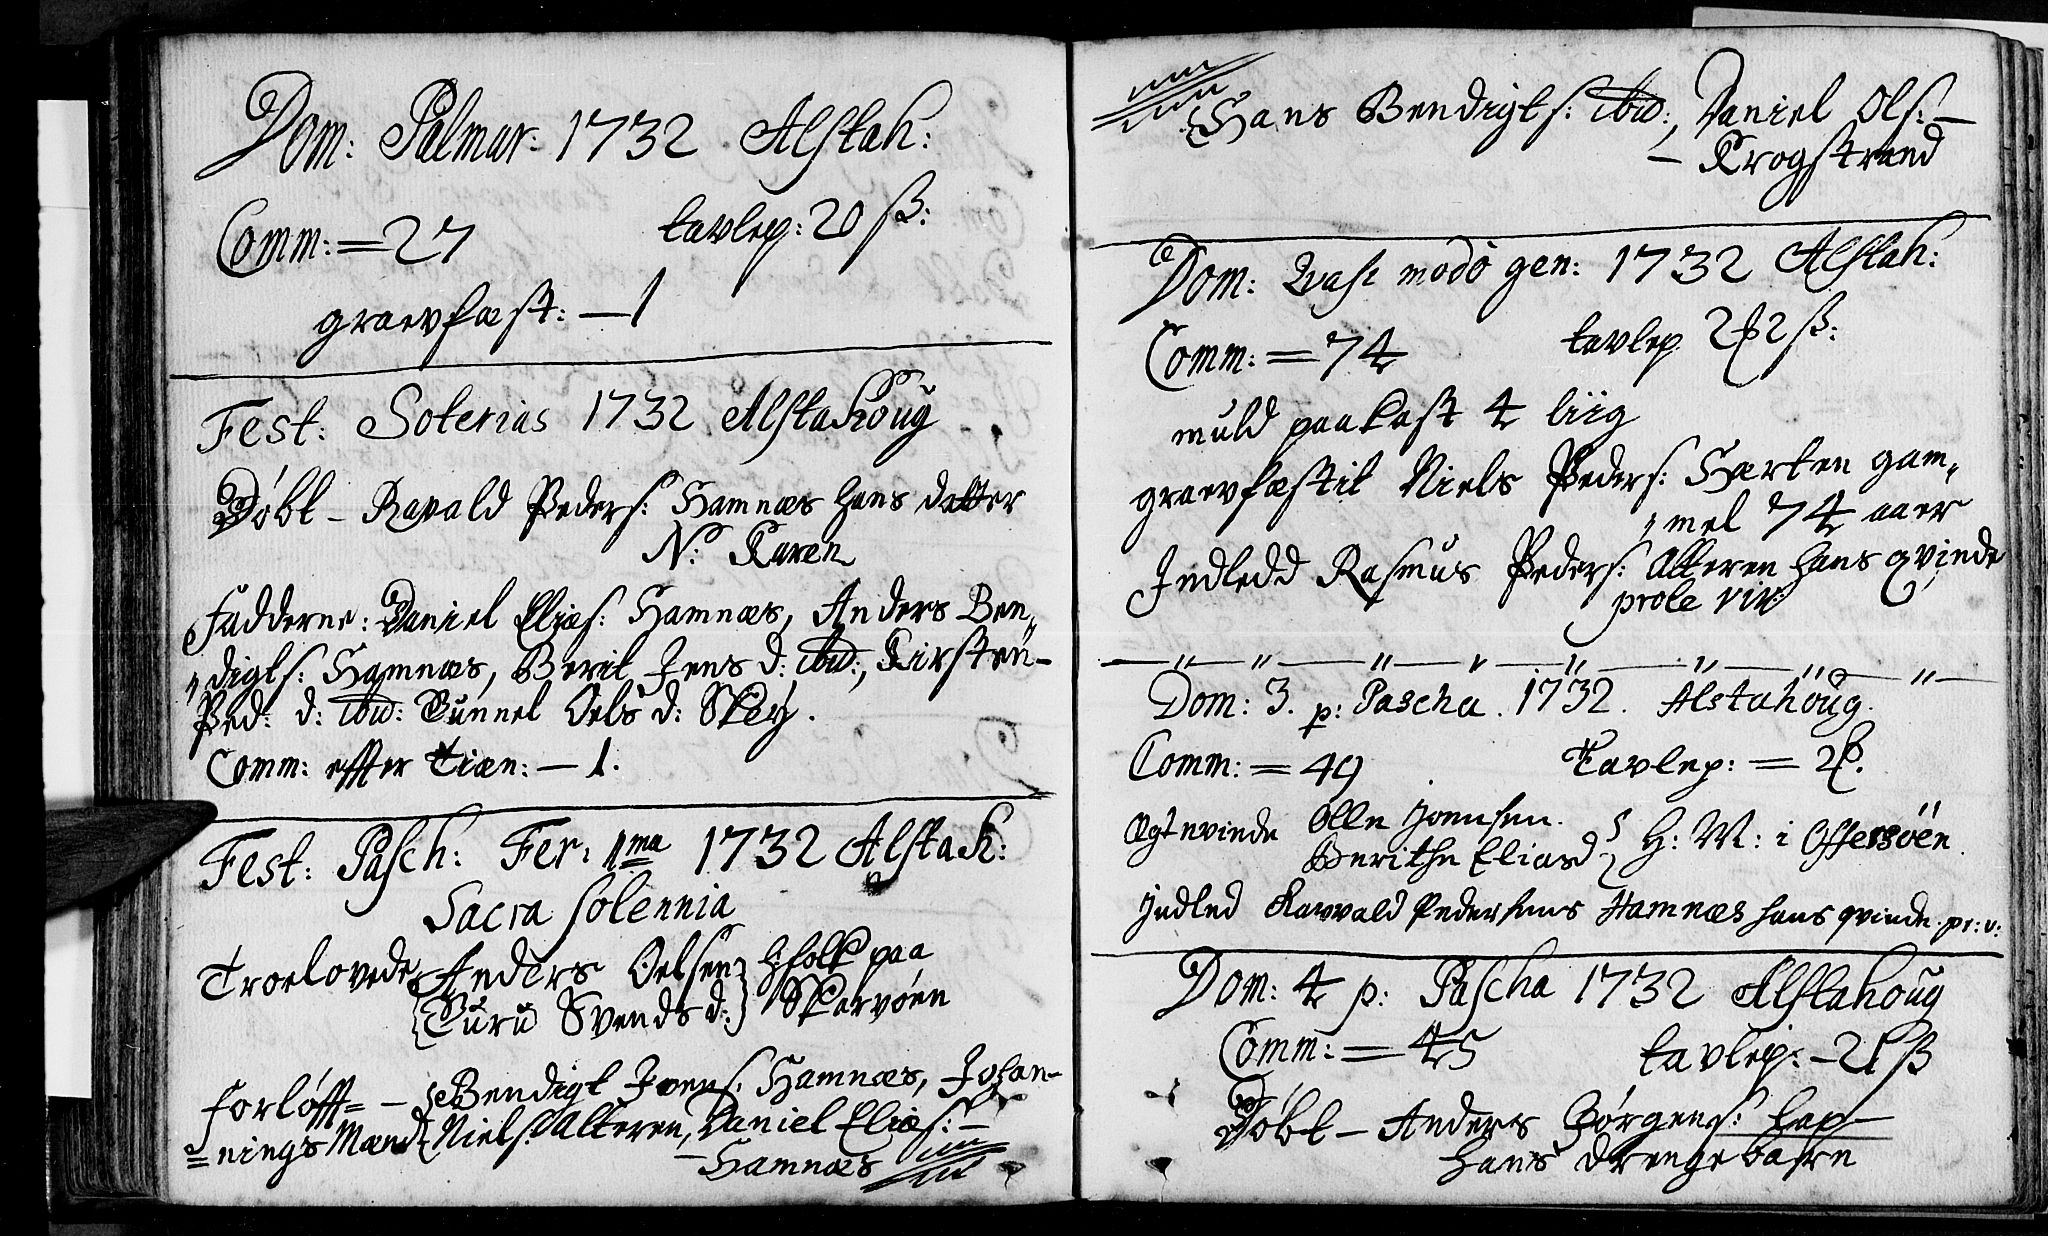 Dom: Palmar: 1732 Alstah:
Comm: = 27 tavlep: 20 ß:
graevfæst: — 1
Fest: Soterias 1732 Alstahoug
Döbt — Ravald Peders: Hamnæs hans datter
N: Karen
Fadderne: Daniel Elias: Hamnæs, Anders Ben„
„digts: Hamnæs, Berit Jens d: ibid:, Kirsten
Ped: d: ibid: Gunnel Oels d: Skey.
Comm: effter Tiæn: — 1.
Fest: Pasch: Fer: 1ma 1732 Alstah:
Sacra solennia
Troelovede Anders Oelsen H:folk paa
Guru Svends d: Skarvöen
Forlöff= — Bendigt Ivers: Hamnæs, Johan—
=nings Mænd Niels: Alteren, Daniel Elias: —
— Hamnæs
Hans Bendigts: ibid:, Daniel Ols: —
— Krogstrand
Dom: Quasi modò gen: 1732 Alstah:
Comm: = 74 tavlep 2 ß:
muld paakast 4 liig
graevfæstit Niels Peders: Hærten gam„
„mel 74 aaer
Indledd Rasmus Peders: Alteren hans qvinde
prole viv:
Dom: 3. p: Pascha. 1732. Alstahöug.
Comm: = 49 Tavlep: = 2
Ægtevinde Olle Joensen.
Berithe Elias d H: M: i Offersöen.
Indled Ravvald Pedersens Hamnæs hans qvinde. pr: v:
Dom: 4 p: Pascha 1732 Alstahoug
Comm: = 45 tavlep: — 21 ß
Döbt — Anders Jörgens: Lap —
hans drengebarn